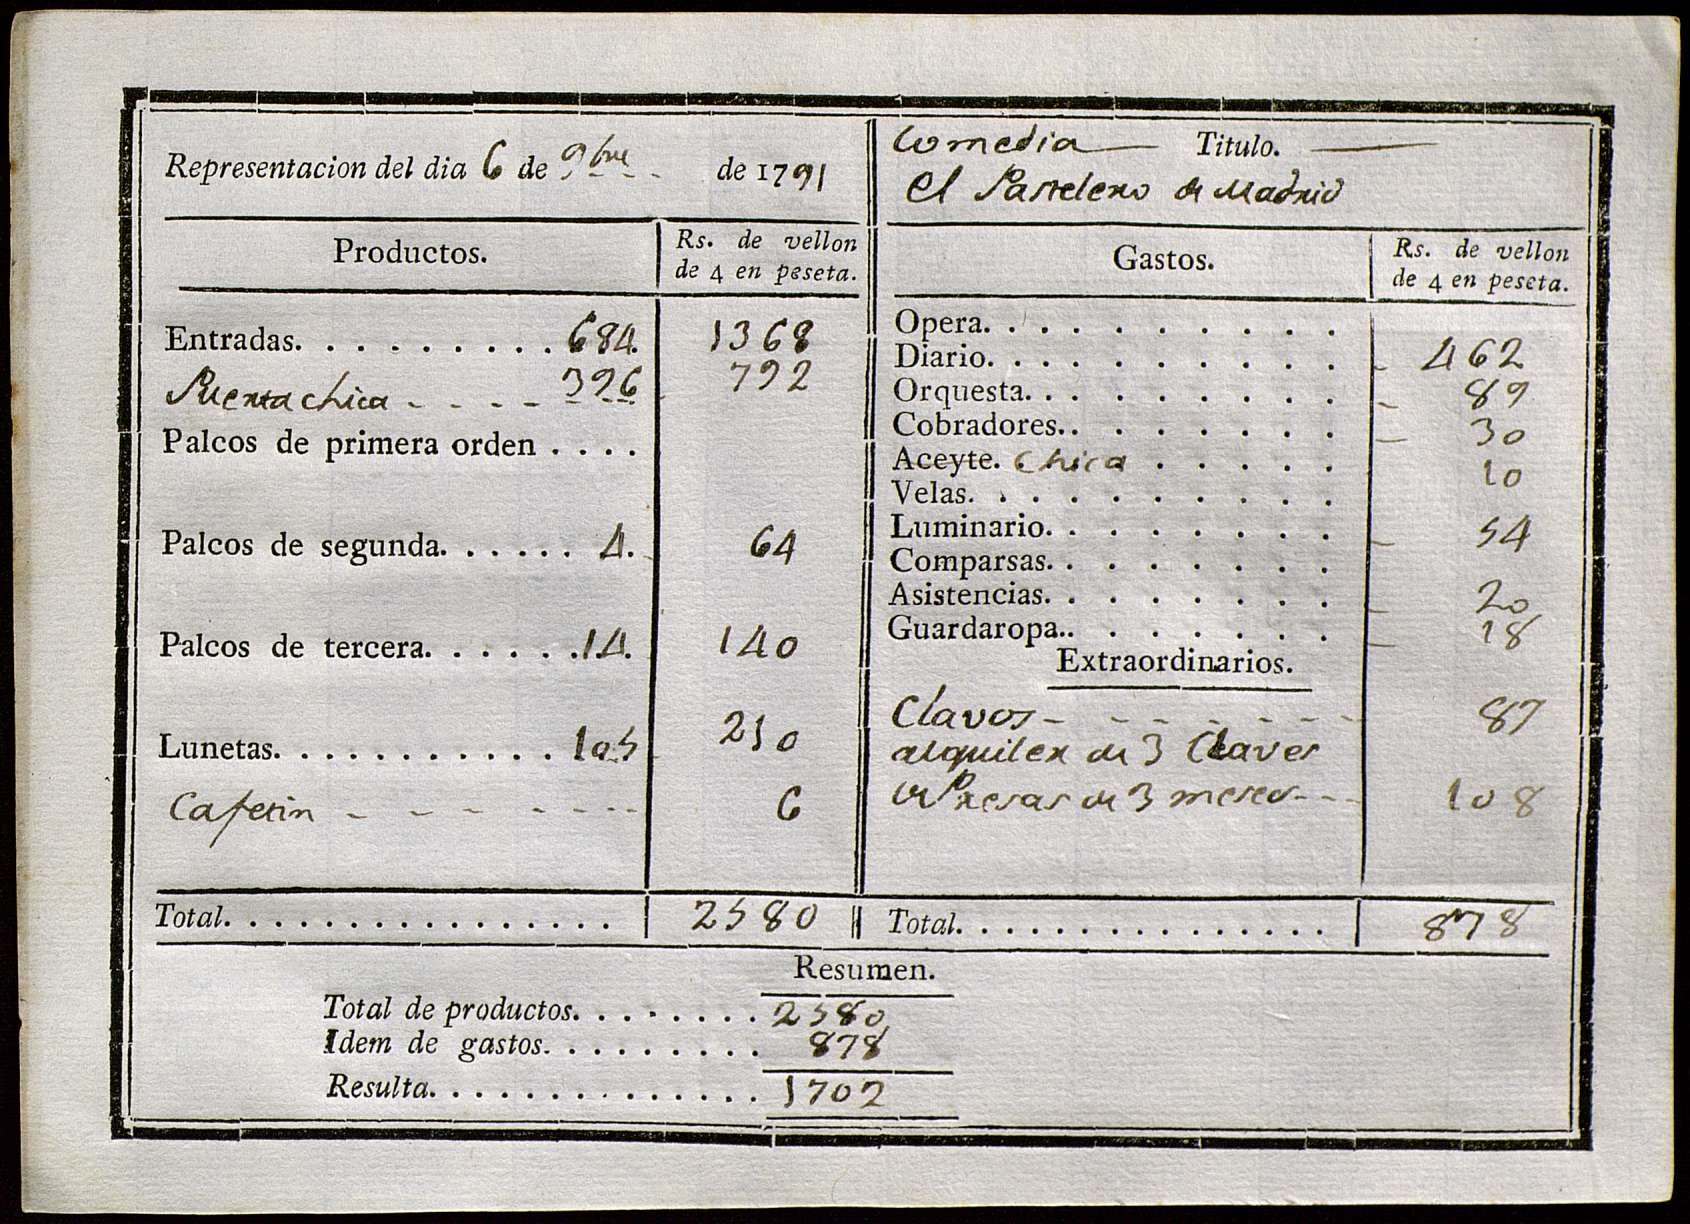 Representacion del dia 6 de 9bre de 1791
Productos. Rs. de vellon
de 4 en peseta.
Entradas. 684. 1368
Puerta chica 396 792
Palcos de primera orden
Palcos de segunda. 4. 64
Palcos de tercera. 14. 140
Lunetas. 105 210
Cafetin 6
Total. 2580
Comedia Titulo.
el Pastelero de Madrid
Gastos. Rs. de vellon
de 4 en peseta.
Opera.
Diario. 462
Orquesta. 89
Cobradores. 30
Aceyte. Chica 10
Velas.
Luminario. 54
Comparsas.
Asistencias. 20
Guardaropa. 18
Extraordinarios.
Clavos 87
alquiler de 3 Claves
de 3 meses 108
Total. 878
Resumen.
Total de productos. 2580
Idem de gastos. 878
Resulta. 1702